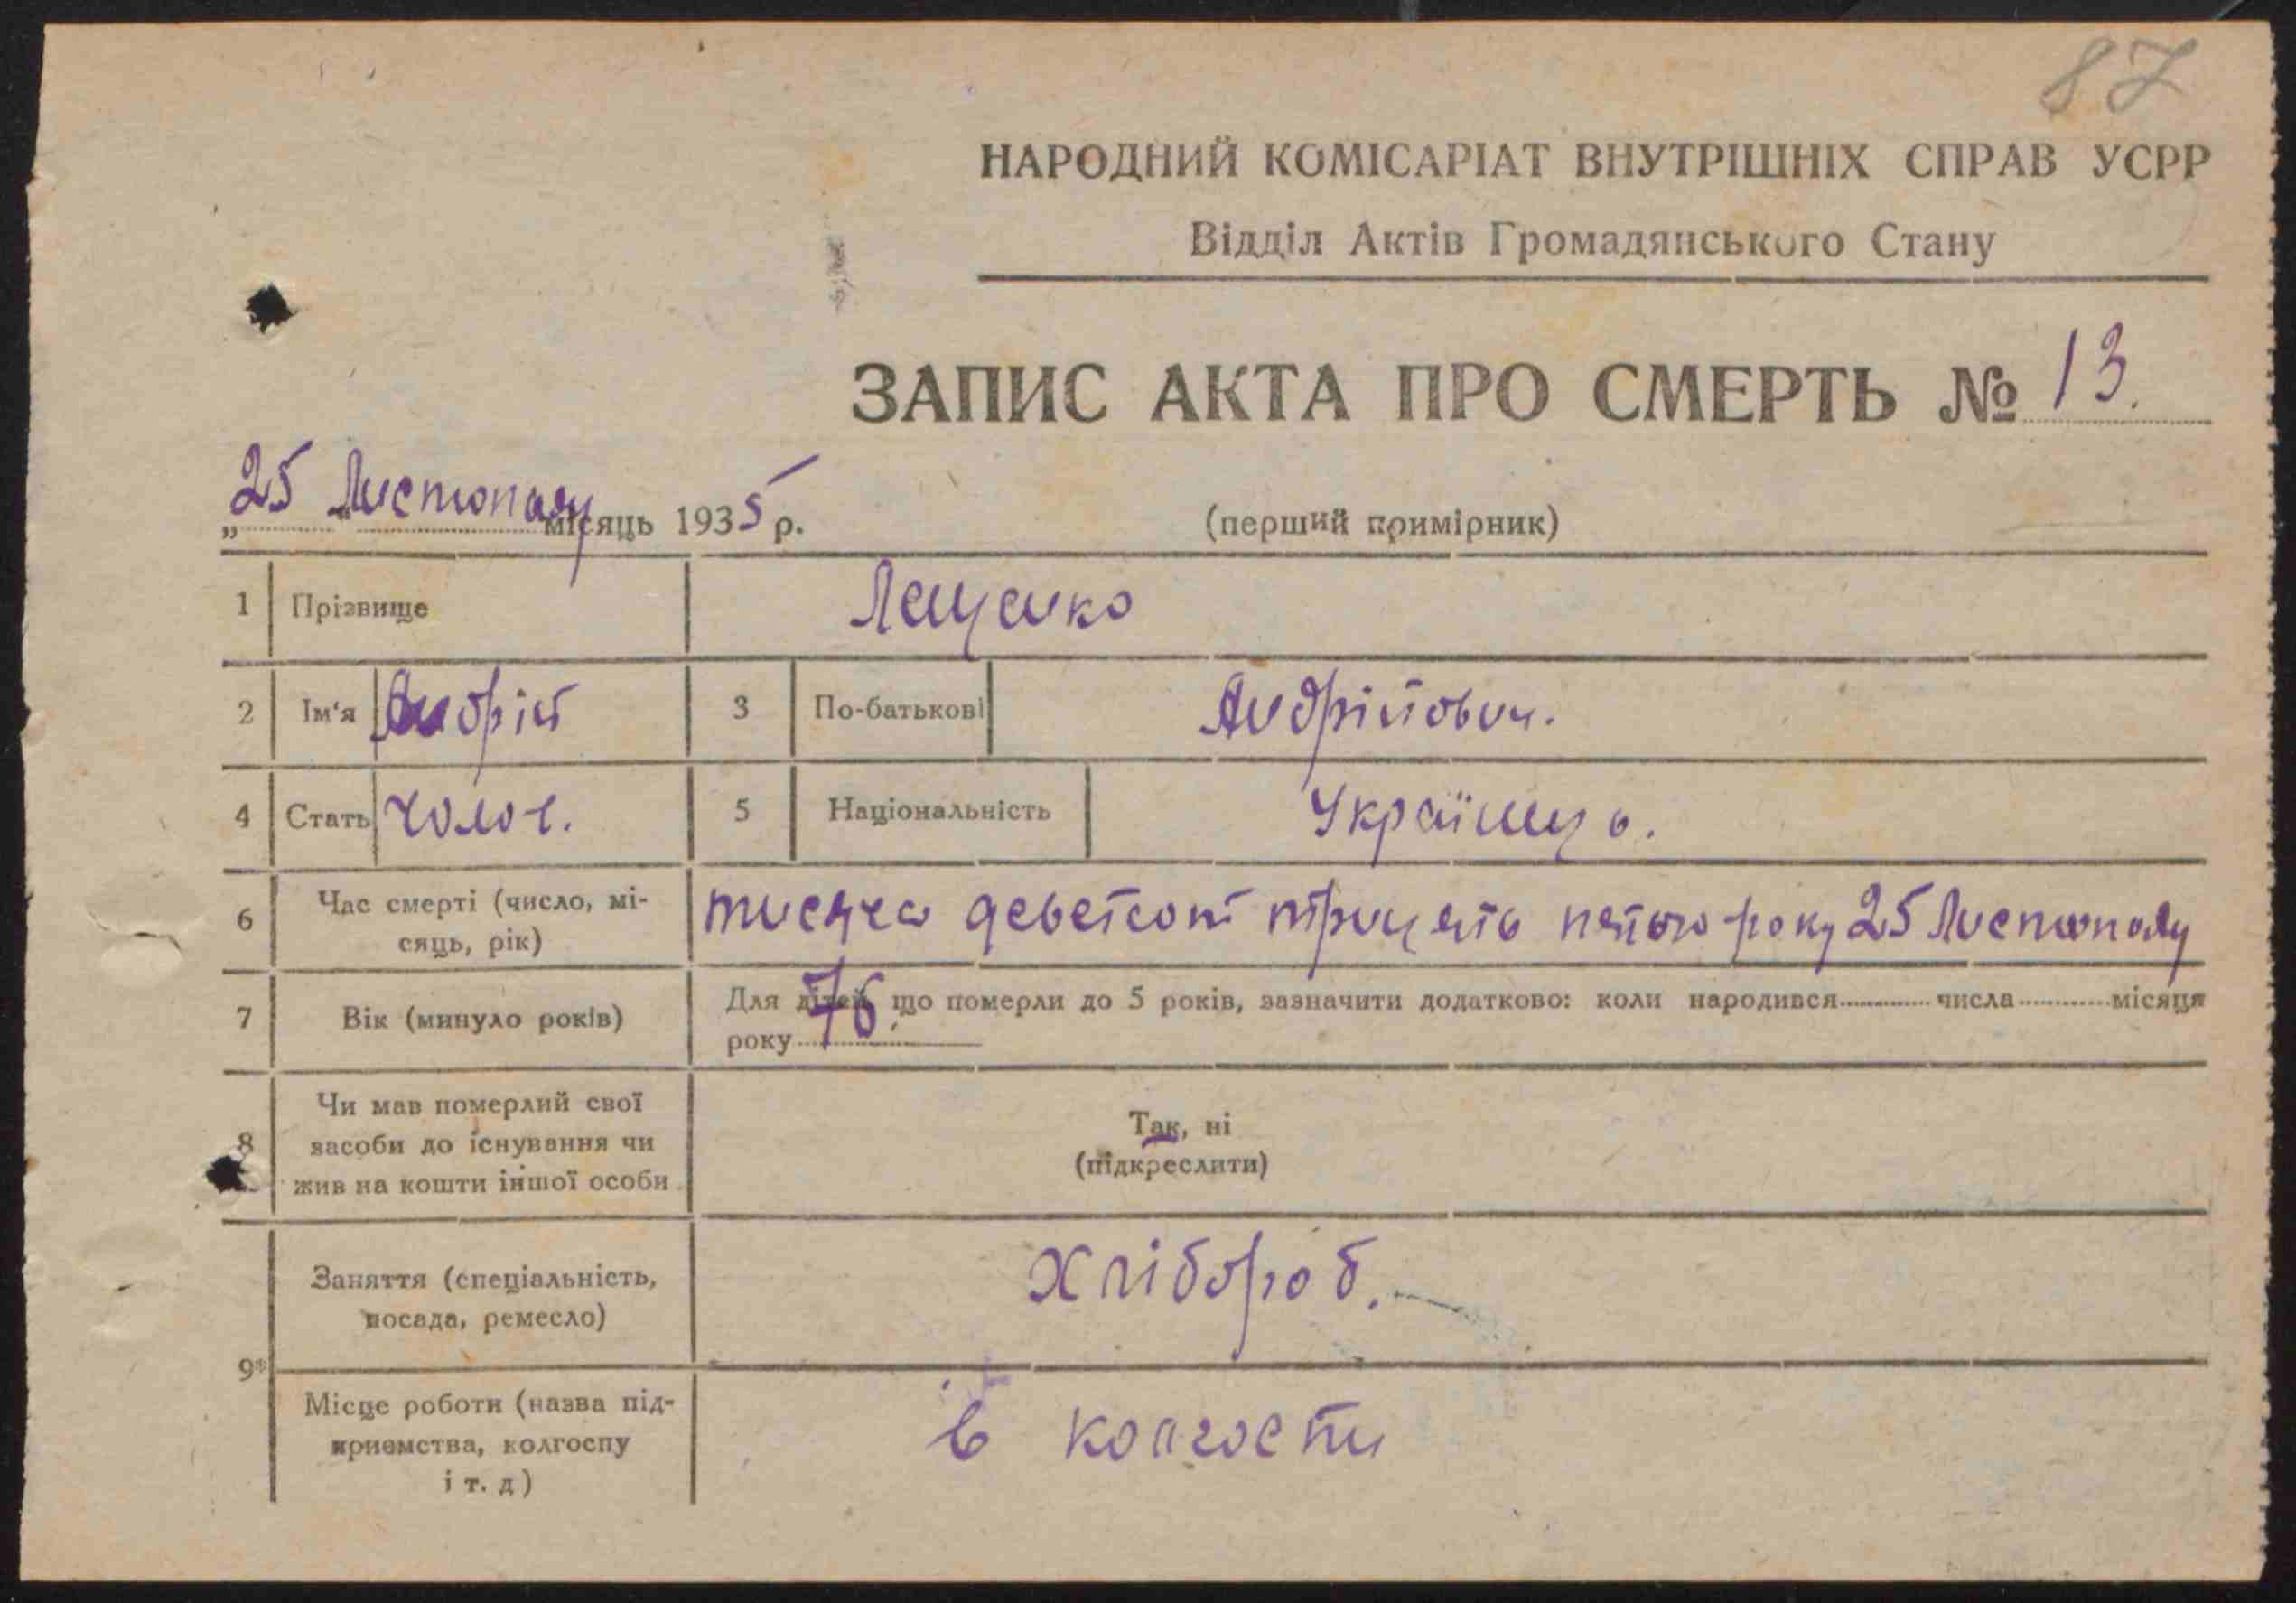 87
НАРОДНИЙ КОМІСАРІАТ ВНУТРІШНІХ СПРАВ УСРР
Відділ Актів Громадянського Стану
ЗАПИС АКТА ПРО СМЕРТЬ № 13.
„25" Листопаду місяць 1935 р.
(перший примірник)
1 Прізвище Лещенко
2 Ім'я Андрій 3 По-батькові Андрійович.
4 Стать чолов. 5 Національність Українць.
6 Час смерті (число, мі-
сяць, рік)
тисяча деветсот трицять пятого року 25 Листопаду
7 Вік (минуло років) 76.
Для дітей, що померли до 5 років, зазначити додатково: коли народився ........ числа ........ місяця
року ........
8 Чи мав померлий свої
засоби до існування чи
жив на кошти іншої особи
Так, ні
(підкреслити)
9* Заняття (спеціальність,
посада, ремесло)
Хлібороб.
Місце роботи (назва під-
приємства, колгоспу
і т. д)
в колгоспи